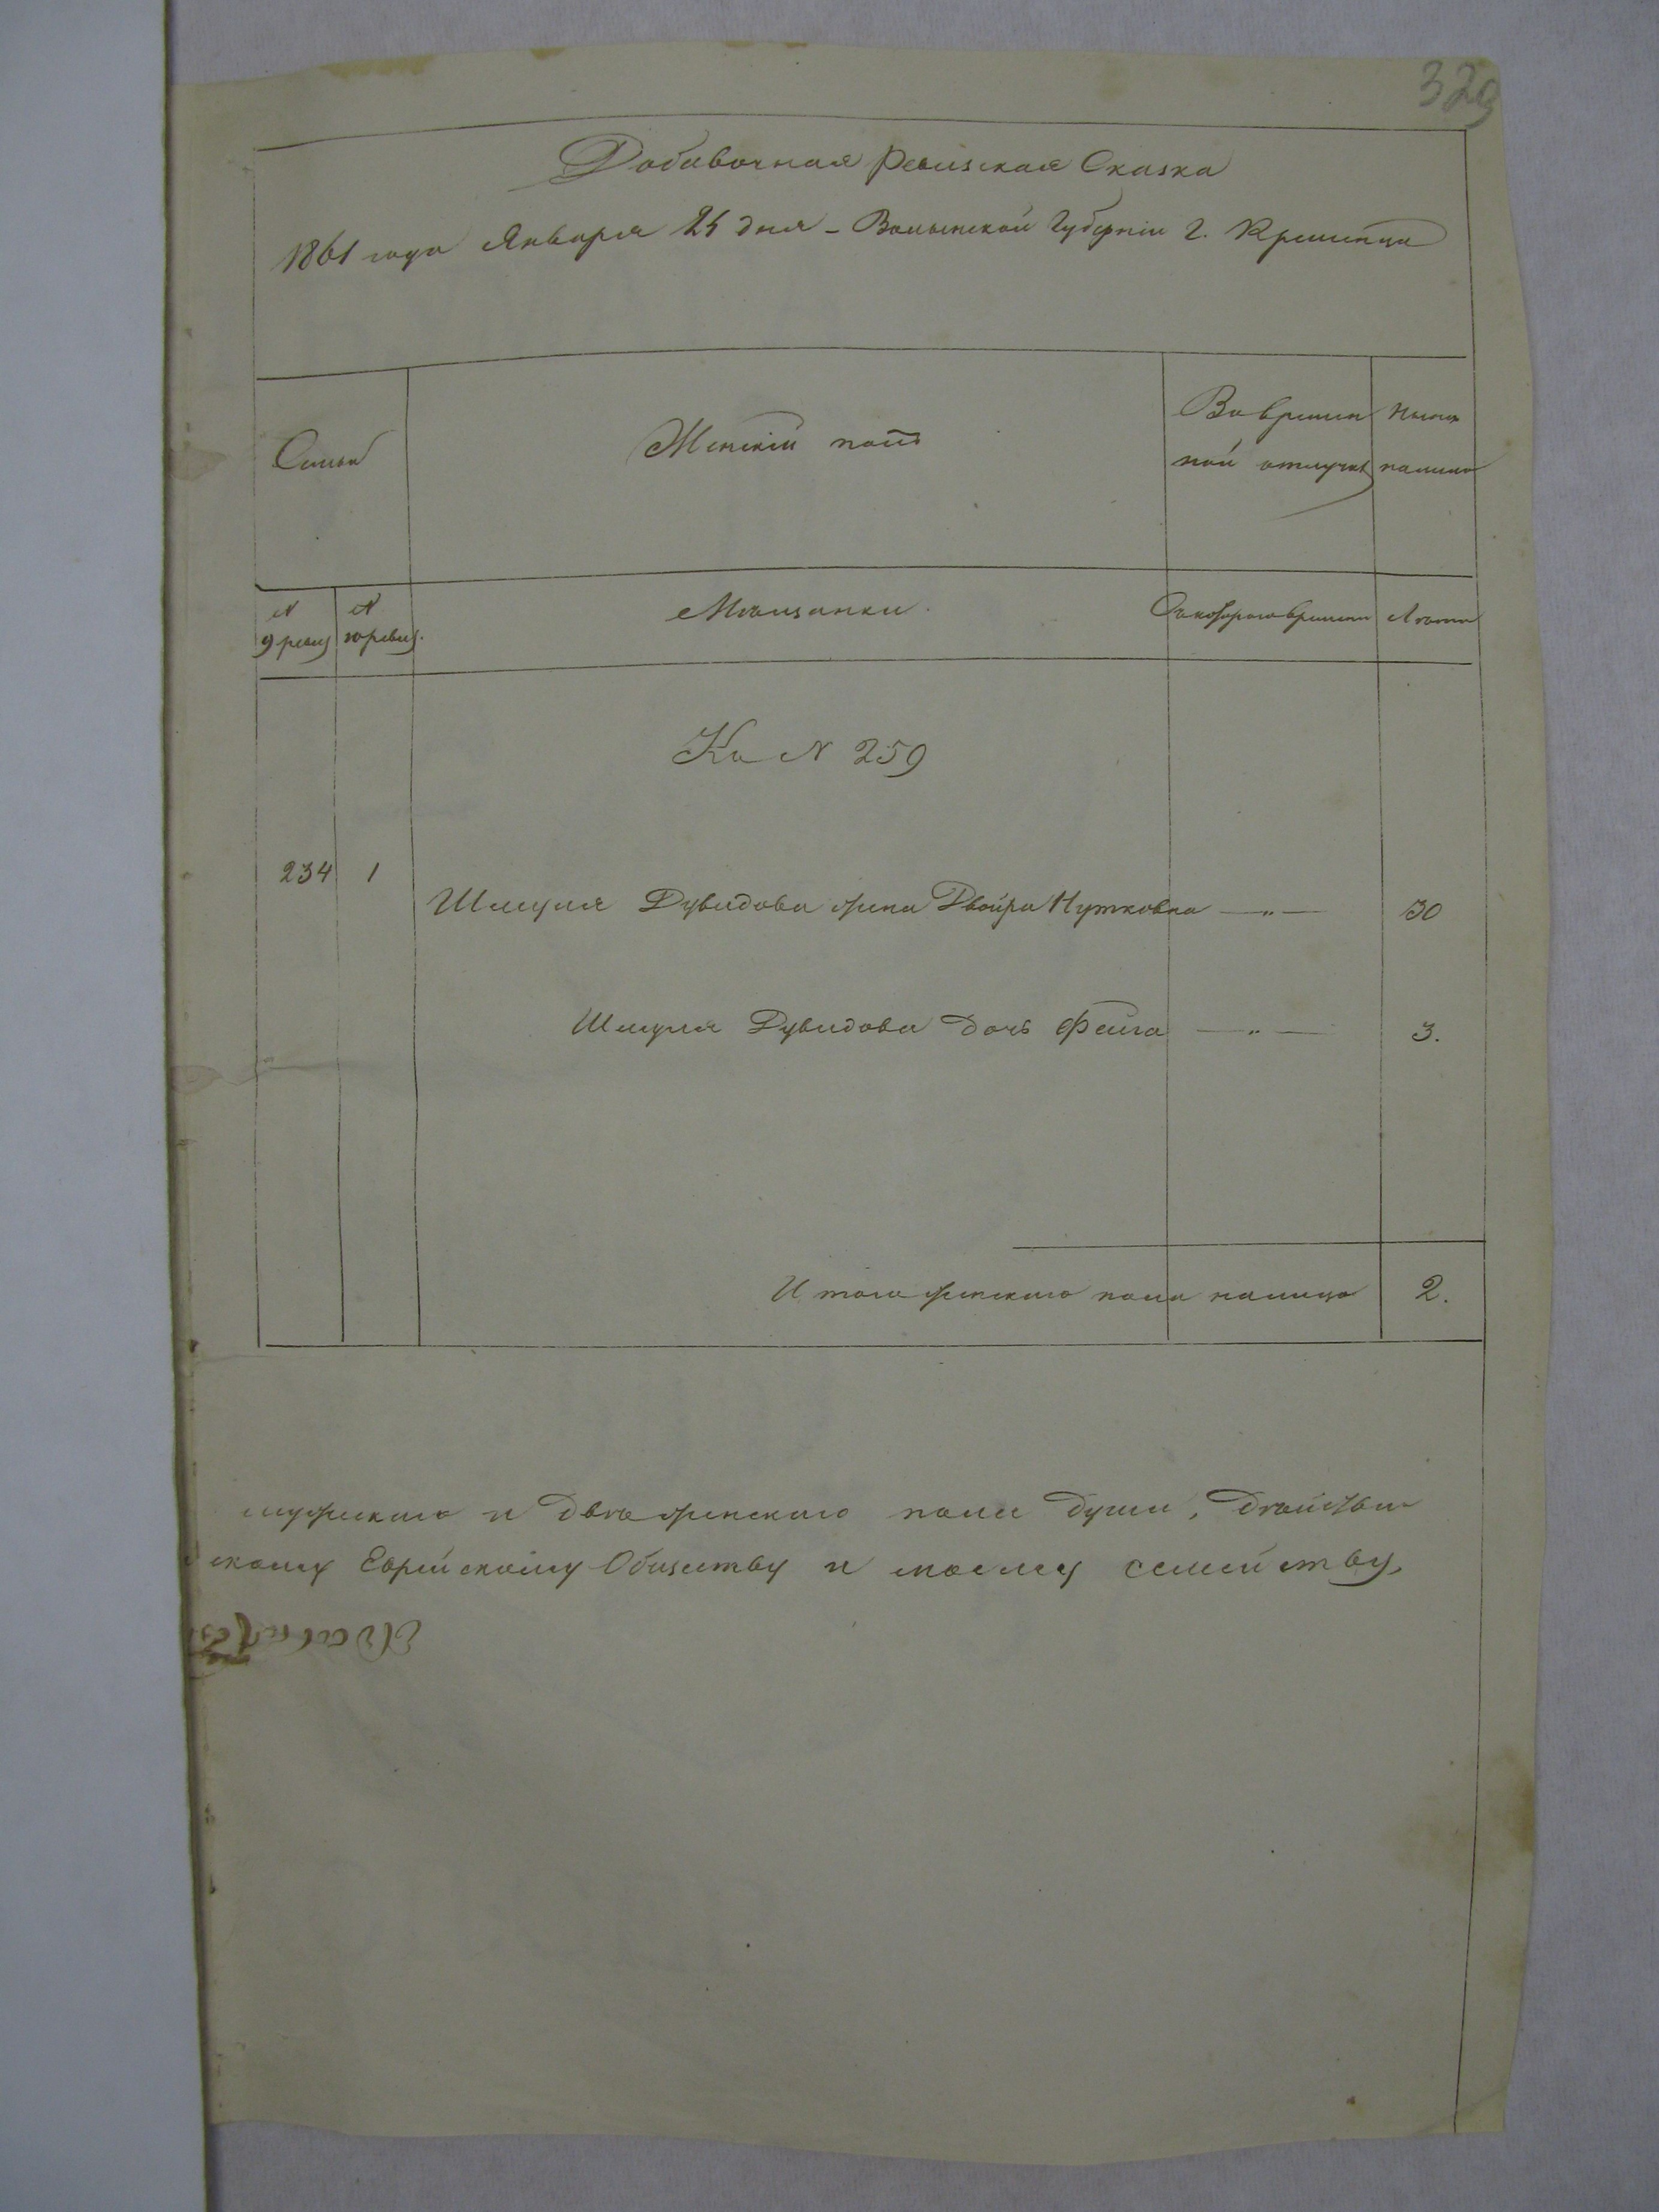 329
Добавочная Ревизская Сказка
1861 года Января 25 дня - Волынской Губерніи г. Кременца
Семьи
Женскій полъ
Во времен
ной отлучкѣ
Нынѣ
налицо
N
9 ревиз
N
10 ревиз.
Мѣщанки.
Съ котораго времени
Лѣта
Къ N 259
234 1
Шмуля Дувидова жена Двойра Нутковна — „ — 30
Шмуля Дувидова дочь Фейга — „ — 3.
Итого женскаго пола налицо 2.
мужскаго и двѣ женскаго пола души, дѣйстви
скому Еврейскому Обществу и моему семейству,